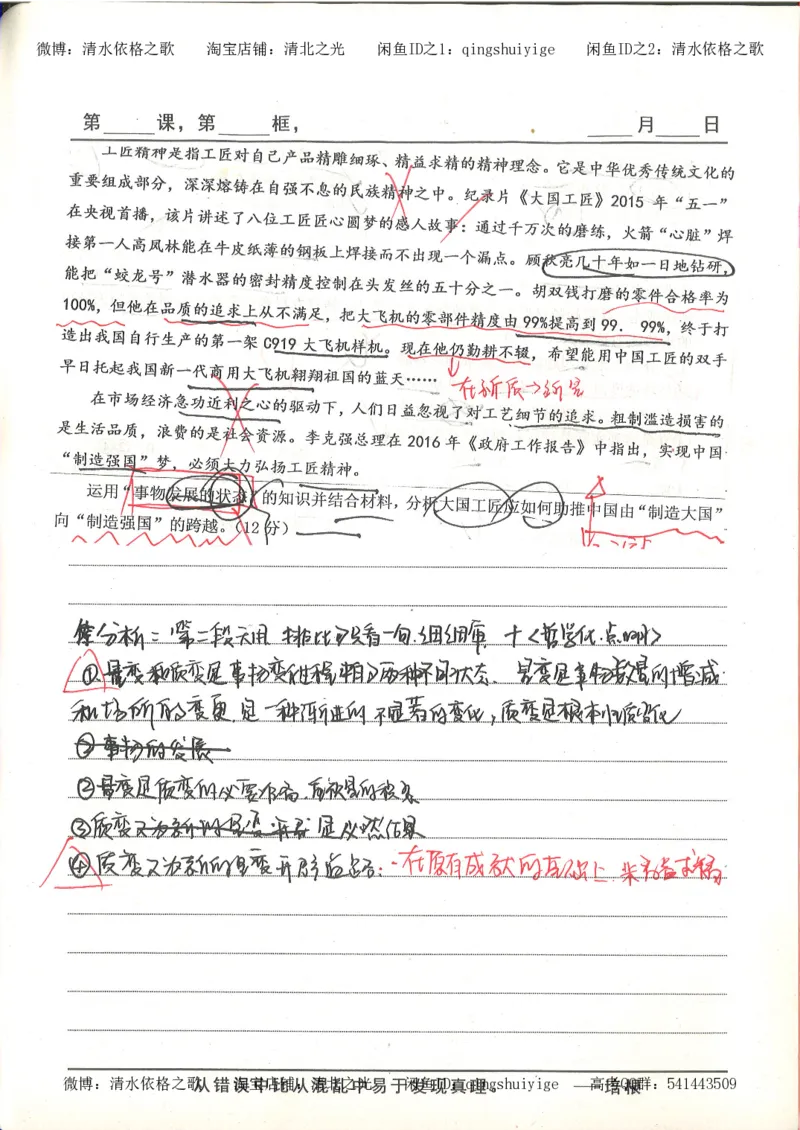 微博：清水依格之歌 淘宝店铺：清北之光 闲鱼ID之1：qingshuiyige 闲鱼ID之2：清水依格之歌
第 课，第 框， 月 日
工匠精神是指工匠对自己产品精雕细琢、精益求精的精神理念。它是中华优秀传统文化的
重要组成部分，深深熔铸在自强不息的民族精神之中。纪录片《大国工匠》2015 年“五一”
在央视首播，该片讲述了八位工匠匠心圆梦的感人故事：通过千万次的磨练，火箭“心脏”焊
接第一人高凤林能在牛皮纸薄的钢板上焊接而不出现一个漏点。顾秋亮几十年如一日地钻研，
能把“蛟龙号”潜水器的密封精度控制在头发丝的五十分之一。胡双钱打磨的零件合格率为
100%，但他在品质的追求上从不满足，把大飞机的零部件精度由 99%提高到 99．99%，终于打
造出我国自行生产的第一架 C919 大飞机样机。现在他仍勤耕不辍，希望能用中国工匠的双手
早日托起我国新一代商用大飞机翱翔祖国的蓝天……
在新质→新量
在市场经济急功近利之心的驱动下，人们日益忽视了对工艺细节的追求。粗制滥造损害的
是生活品质，浪费的是社会资源。李克强总理在 2016 年《政府工作报告》中指出，实现中国
“制造强国”梦，必须大力弘扬工匠精神。
运用“事物发展的状态”的知识并结合材料，分析大国工匠应如何助推中国由“制造大国”
向“制造强国”的跨越。（12 分）
分析：第二段无用
①量变和质变是事物变化过程中两种不同状态．量变是事物数量的增减
和场所的变更，是一种渐进的不显著的变化，质变是根本性质变化
②事物的发展
②量变是质变的必要准备，
③质变又为新的量变开 是必然结果
④质变又为新的量变开辟道路：在原有成就的基础上
微博：清水依格之歌 淘宝店铺：清北之光 闲鱼ID：qingshuiyige 高考QQ群：541443509
从错误中比从混乱中易于发现真理。 ——培根